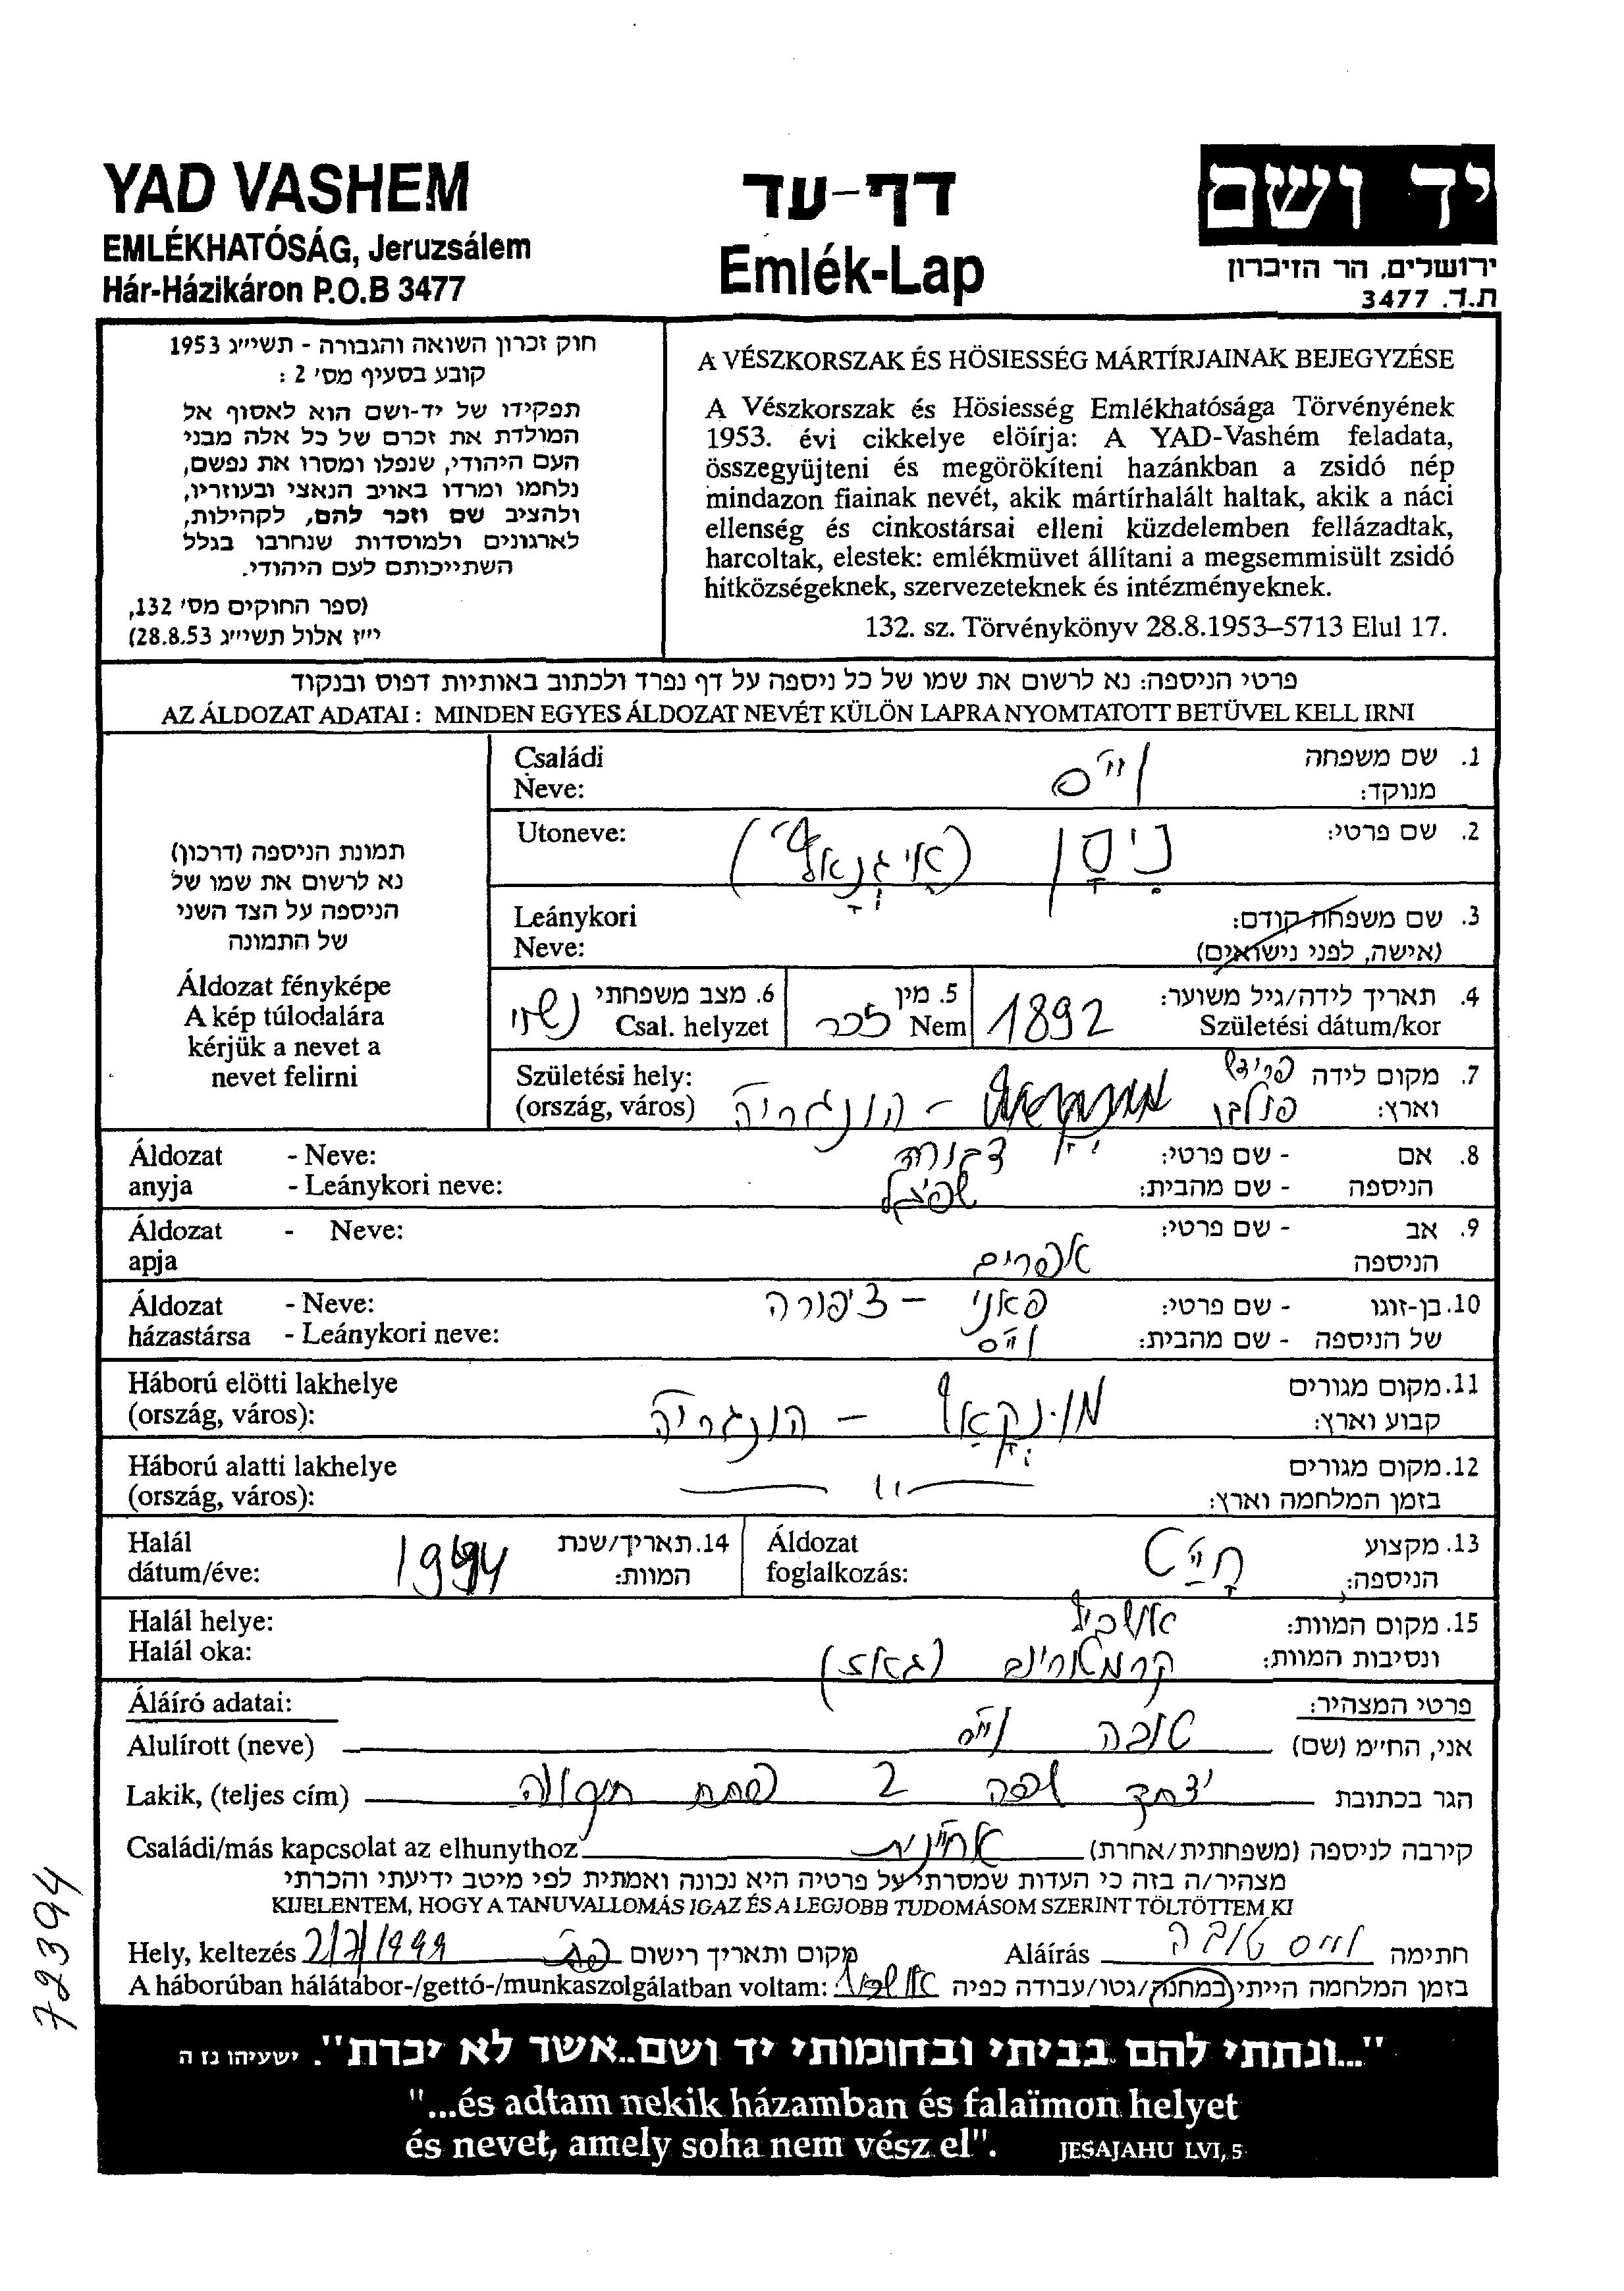 YAD VASHEM
EMLÉKHATÓSÁG, Jeruzsálem
Hár-Házikáron P.O.B 3477
דף-עד
Emlék-Lap
יד ושם
ירושלים, הר הזיכרון
ת.ד. 3477
חוק זכרון השואה והגבורה - תשי״ג 1953
קובע בסעיף מס׳ 2 :
תפקידו של יד-ושם הוא לאסוף אל
המולדת את זכרם של כל אלה מבני
העם היהודי, שנפלו ומסרו את נפשם,
נלחמו ומרדו באויב הנאצי ובעוזריו,
ולהציב שם וזכר להם, לקהילות,
לארגונים ולמוסדות שנחרבו בגלל
השתייכותם לעם היהודי.
(ספר החוקים מס׳ 132,
י״ז אלול תשי״ג 28.8.53)
A VÉSZKORSZAK ÉS HÖSIESSÉG MÁRTÍRJAINAK BEJEGYZÉSE
A Vészkorszak és Hösiesség Emlékhatósága Törvényének
1953. évi cikkelye elöírja: A YAD-Vashém feladata,
összegyüjteni és megörökíteni hazánkban a zsidó nép
mindazon fiainak nevét, akik mártírhalált haltak, akik a náci
ellenség és cinkostársai elleni küzdelemben fellázadtak,
harcoltak, elestek: emlékmüvet állítani a megsemmisült zsidó
hitközségeknek, szervezeteknek és intézményeknek.
132. sz. Törvénykönyv 28.8.1953–5713 Elul 17.
פרטי הניספה: נא לרשום את שמו של כל ניספה על דף נפרד ולכתוב באותיות דפוס ובנקוד
AZ ÁLDOZAT ADATAI : MINDEN EGYES ÁLDOZAT NEVÉT KÜLÖN LAPRA NYOMTATOTT BETÜVEL KELL IRNI
תמונת הניספה (דרכון)
נא לרשום את שמו של
הניספה על הצד השני
של התמונה
Áldozat fényképe
A kép túlodalára
kérjük a nevet a
nevet felirni
Családi
Neve:
וייס
1. שם משפחה
מנוקד:
Utoneve:
נִיסָן (אִיגְנָאץ)
2. שם פרטי:
Leánykori
Neve:
3. שם משפחה קודם:
(אישה, לפני נישואים)
6. מצב משפחתי
Csal. helyzet
נשוי
5. מין
Nem
זכר
1892
4. תאריך לידה/גיל משוער:
Születési dátum/kor
Születési hely:
(ország, város)
הונגריה
7. מקום לידה
וארץ:
Áldozat - Neve:
anyja - Leánykori neve:
דבורה
שפיגל
8. אם - שם פרטי:
הניספה - שם מהבית:
Áldozat - Neve:
apja
אפרים
9. אב - שם פרטי:
הניספה
Áldozat - Neve:
házastársa - Leánykori neve:
פאני - ציפורה
וייס
10. בן-זוגו - שם פרטי:
של הניספה - שם מהבית:
Háború elötti lakhelye
(ország, város):
מונקאץ - הונגריה
11. מקום מגורים
קבוע וארץ:
Háború alatti lakhelye
(ország, város):
— 11 —
12. מקום מגורים
בזמן המלחמה וארץ:
Halál
dátum/éve:
1944
14. תאריך/שנת
המוות:
Áldozat
foglalkozás:
חייט
13. מקצוע
הניספה:
Halál helye:
Halál oka:
אושביץ
קרמטוריום (גאז)
15. מקום המוות:
ונסיבות המוות:
Áláíró adatai:
פרטי המצהיר:
Alulírott (neve)
טובה וייס
אני, הח״מ (שם)
Lakik, (teljes cím)
יצחק שפה 2 פתח תקווה
הגר בכתובת
Családi/más kapcsolat az elhunythoz
אחיינית
קירבה לניספה (משפחתית/אחרת)
מצהיר/ה בזה כי העדות שמסרתי על פרטיה היא נכונה ואמתית לפי מיטב ידיעתי והכרתי
KIJELENTEM, HOGY A TANUVALLOMÁS IGAZ ÉS A LEGJOBB TUDOMÁSOM SZERINT TÖLTÖTTEM KI
Hely, keltezés 2/7/1999 פ"ת מקום ותאריך רישום
Aláírás וייס טובה חתימה
A háborúban hálátábor-/gettó-/munkaszolgálatban voltam: אושביץ בזמן המלחמה הייתי במחנה/גטו/עבודה כפיה
72394
"...ונתתי להם בביתי ובחומותי יד ושם..אשר לא יכרת". ישעיהו נז ה
"...és adtam nekik házamban és falaïmon helyet
és nevet, amely soha nem vész el". JESAJAHU LVI, 5